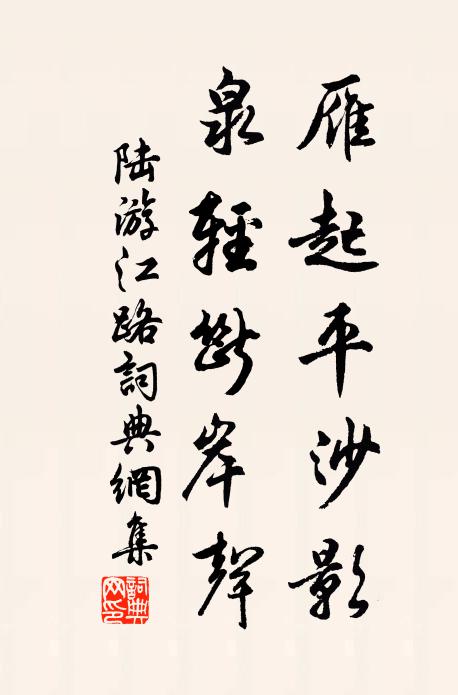 雁起平沙影
泉輕斷岸聲
陆游江路詞典網集
詞典网印